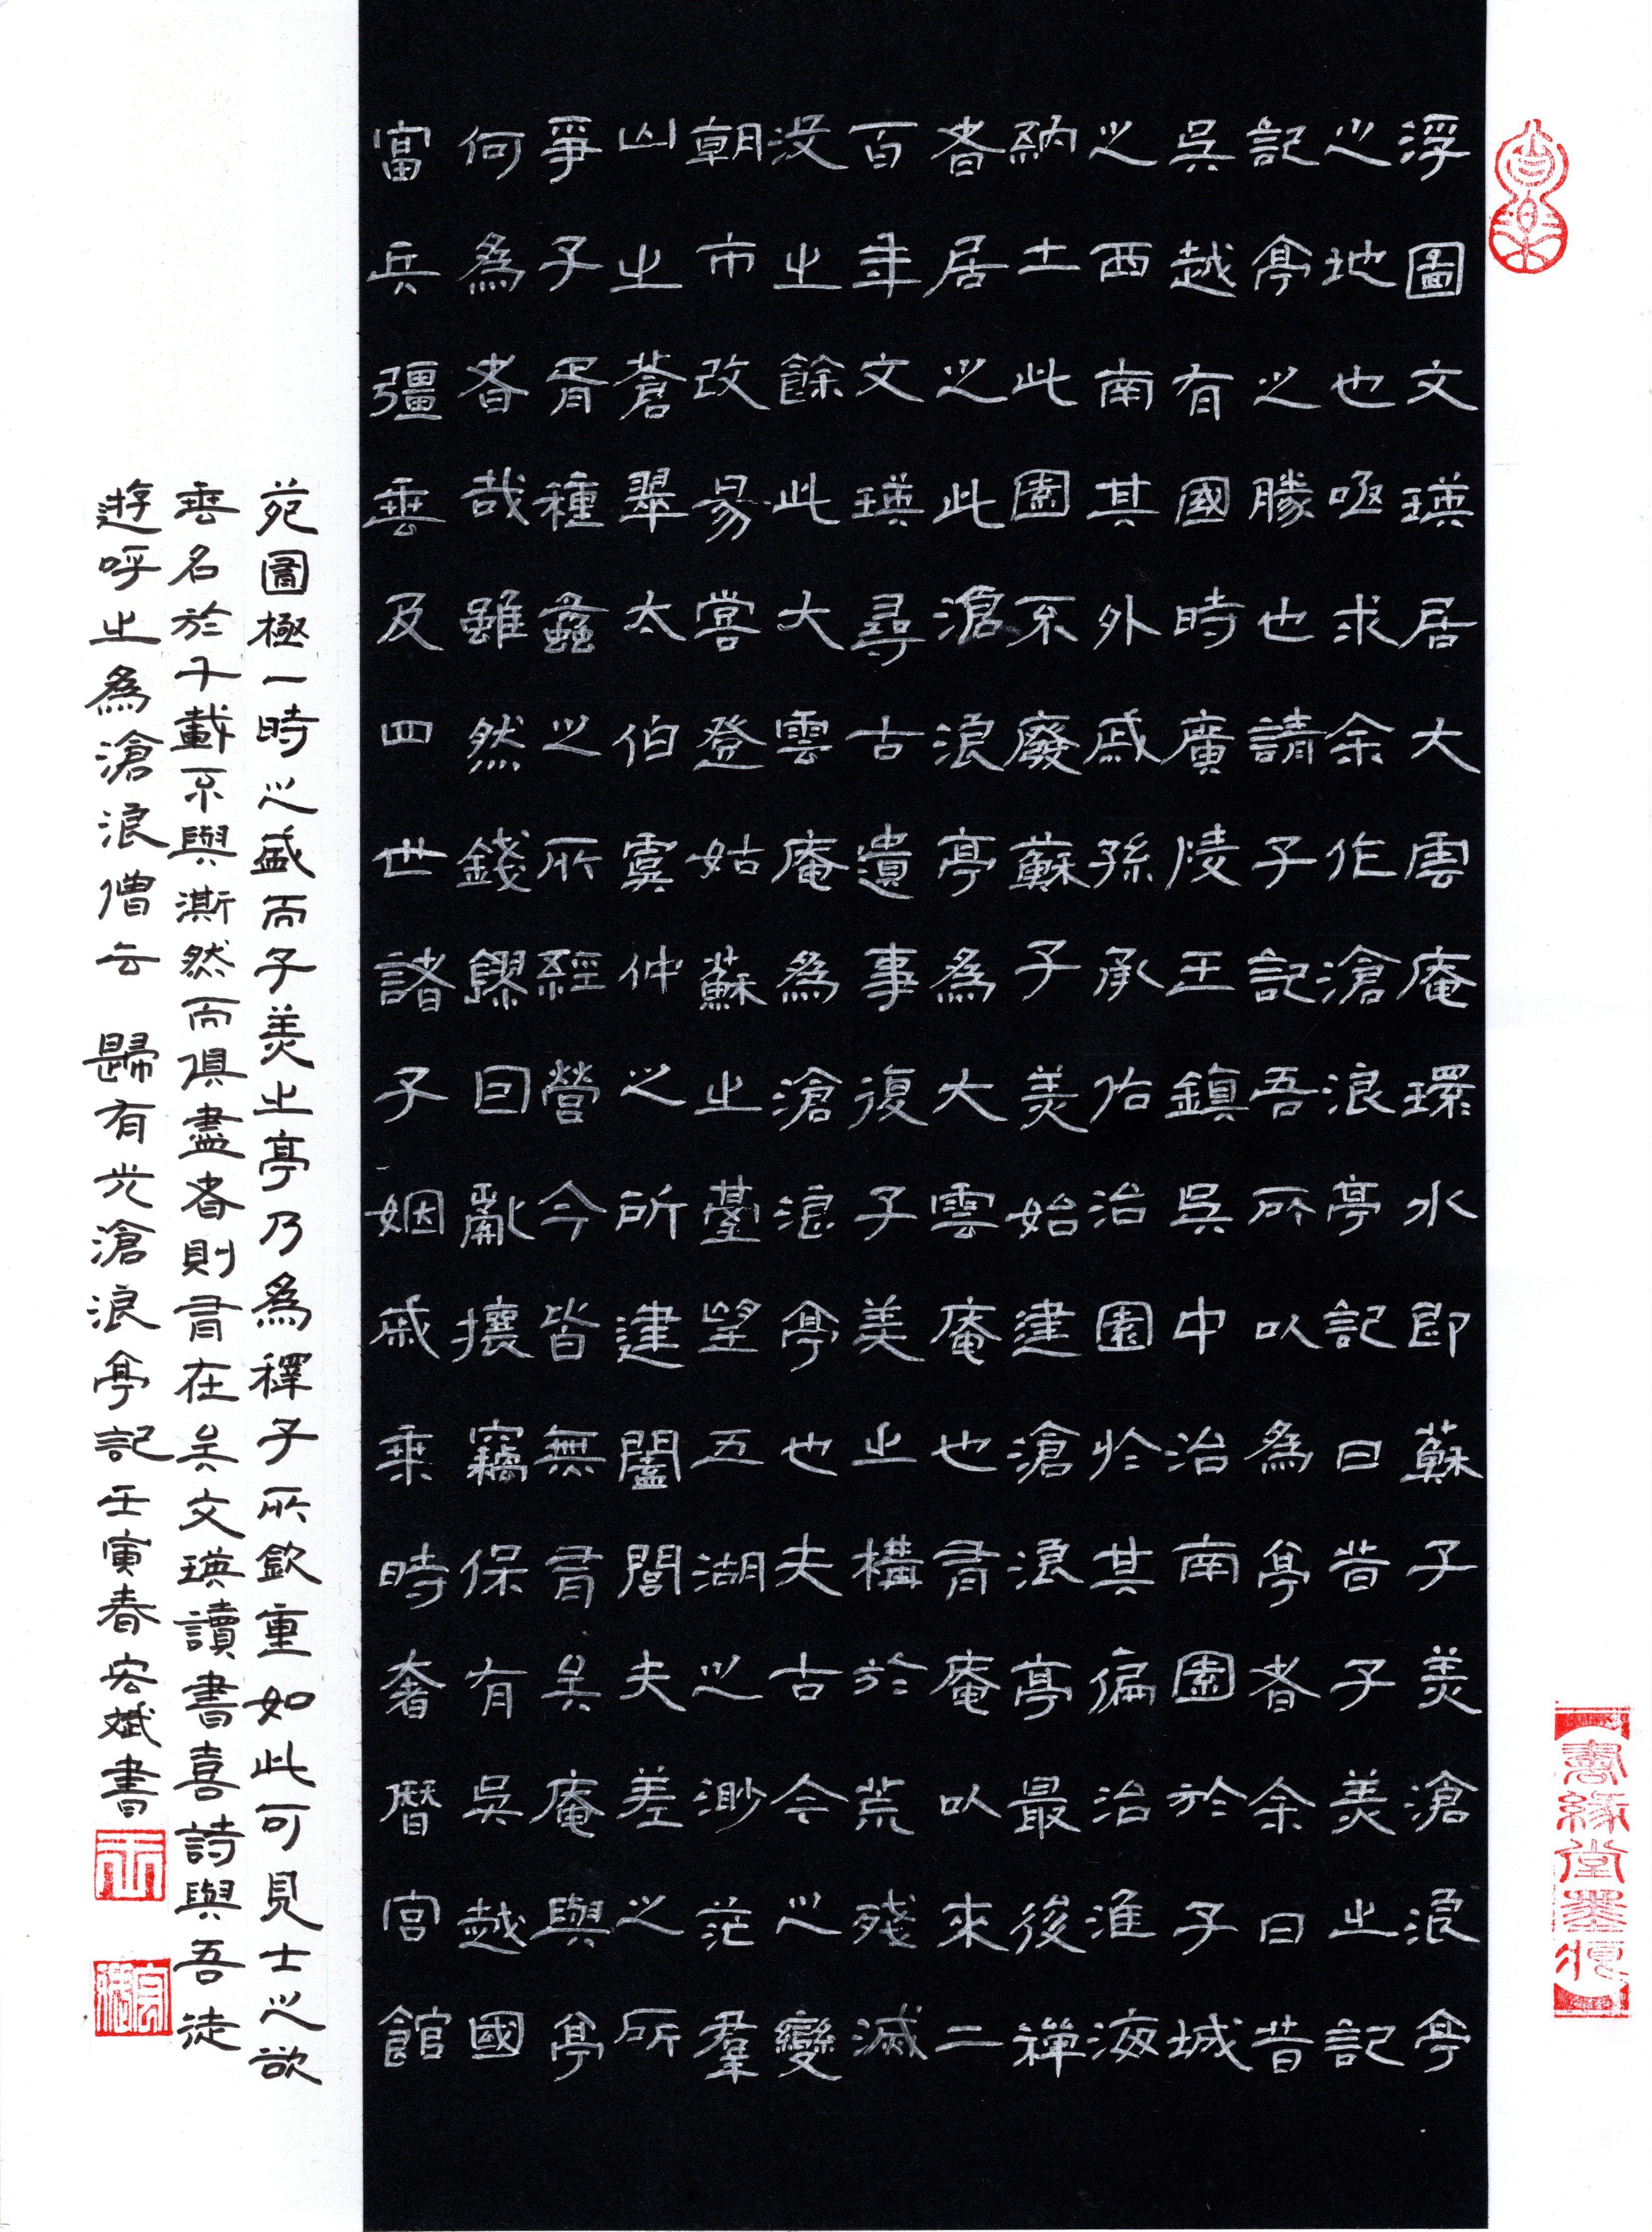 浮圖文瑛居大雲庵環水即蘇子美滄浪亭
之地也亟求余作滄浪亭記曰昔子美之記
記亭之勝也請子記吾所以為亭者余曰昔
吳越有國時廣陵王鎮吳中治南園於子城
之西南其外戚孫承佑治園於其偏治淮海
納土此園不廢蘇子美始建滄浪亭最後禪
者居之此滄浪亭為大雲庵也有庵以來二
百年文瑛尋古遺事復子美之構於荒殘滅
沒之餘此大雲庵為滄浪亭也夫古今之變
朝市改易嘗登姑蘇之臺望五湖之渺茫羣
山之蒼翠太伯虞仲之所建闔閭夫差之所
爭子胥種蠡之所經營今皆無有矣庵與亭
何為者哉雖然錢鏐因亂攘竊保有吳越國
富兵彊垂及四世諸子姻戚乘時奢曆宮館
苑圖極一時之盛而子美之亭乃為釋子所欽重如此可見士之欲
垂名於千載不與澌然而俱盡者則有在矣文瑛讀書喜詩與吾徒
遊呼之為滄浪僧云 歸有光滄浪亭記壬寅春宏斌書